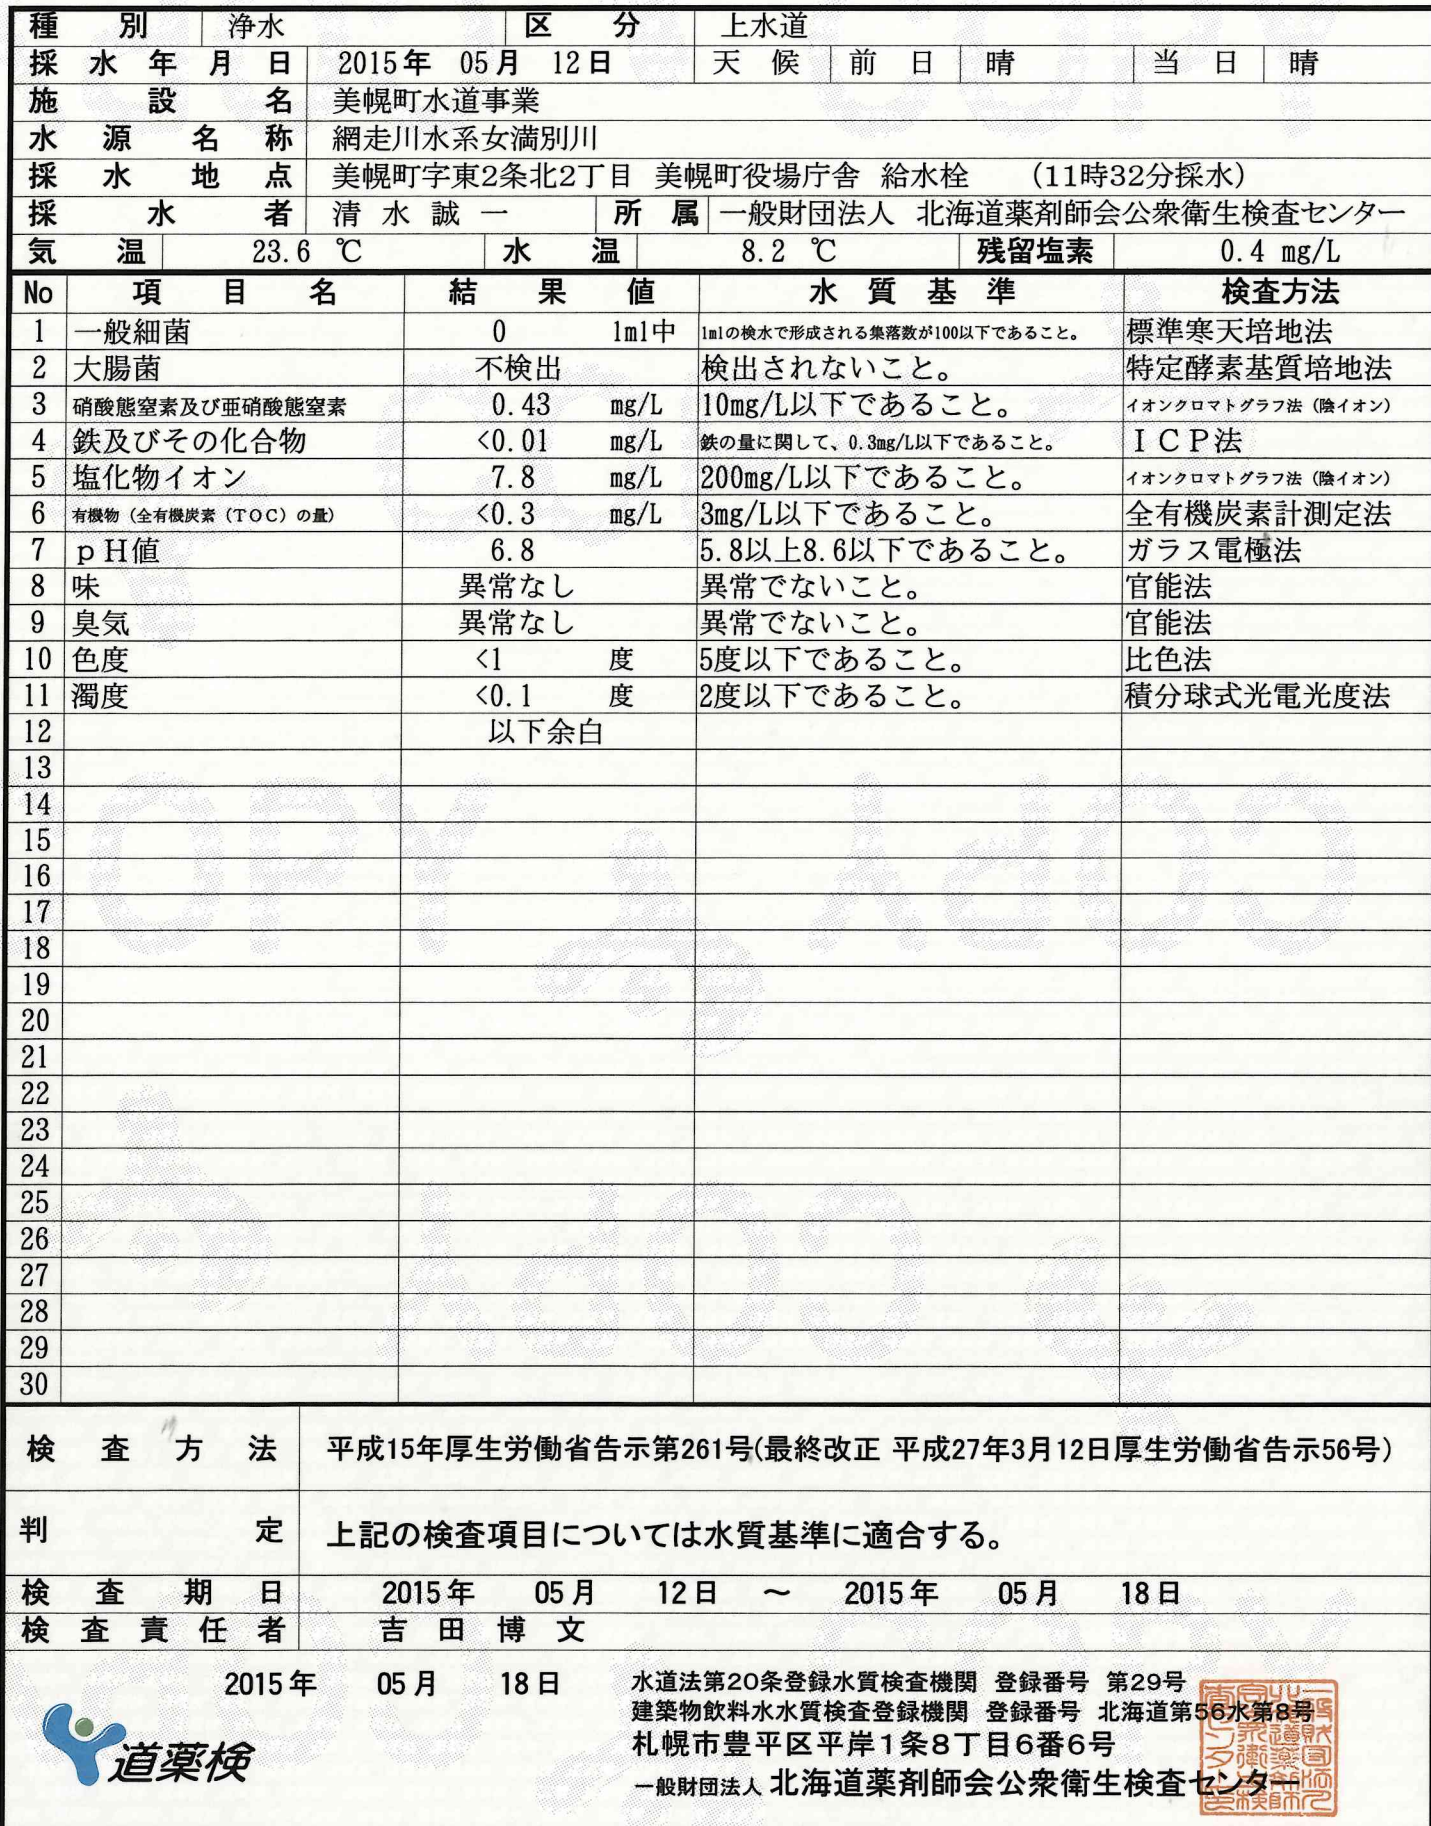 種別 浄水 区分 上水道
採水年月日 2015年 05月 12日 天候 前日 晴 当日 晴
施設名 美幌町水道事業
水源名称 網走川水系女満別川
採水地点 美幌町字東2条北2丁目 美幌町役場庁舎 給水栓 (11時32分採水)
採水者 清水誠一 所属 一般財団法人 北海道薬剤師会公衆衛生検査センター
気温 23.6 ℃ 水温 8.2 ℃ 残留塩素 0.4 mg/L
No 項目名 結果値 水質基準 検査方法
1 一般細菌 0 1ml中 1mlの検水で形成される集落数が100以下であること。 標準寒天培地法
2 大腸菌 不検出 検出されないこと。 特定酵素基質培地法
3 硝酸態窒素及び亜硝酸態窒素 0.43 mg/L 10mg/L以下であること。 イオンクロマトグラフ法（陰イオン）
4 鉄及びその化合物 <0.01 mg/L 鉄の量に関して、0.3mg/L以下であること。 ＩＣＰ法
5 塩化物イオン 7.8 mg/L 200mg/L以下であること。 イオンクロマトグラフ法（陰イオン）
6 有機物（全有機炭素（ＴＯＣ）の量） <0.3 mg/L 3mg/L以下であること。 全有機炭素計測定法
7 ｐＨ値 6.8 5.8以上8.6以下であること。 ガラス電極法
8 味 異常なし 異常でないこと。 官能法
9 臭気 異常なし 異常でないこと。 官能法
10 色度 <1 度 5度以下であること。 比色法
11 濁度 <0.1 度 2度以下であること。 積分球式光電光度法
12 以下余白
13
14
15
16
17
18
19
20
21
22
23
24
25
26
27
28
29
30
検査方法 平成15年厚生労働省告示第261号(最終改正 平成27年3月12日厚生労働省告示56号)
判定 上記の検査項目については水質基準に適合する。
検査期日 2015年 05月 12日 ～ 2015年 05月 18日
検査責任者 吉田博文
2015年 05月 18日
水道法第20条登録水質検査機関 登録番号 第29号
建築物飲料水水質検査登録機関 登録番号 北海道第56水第8号
札幌市豊平区平岸1条8丁目6番6号
一般財団法人 北海道薬剤師会公衆衛生検査センター
道薬検
COPY
COPY
COPY